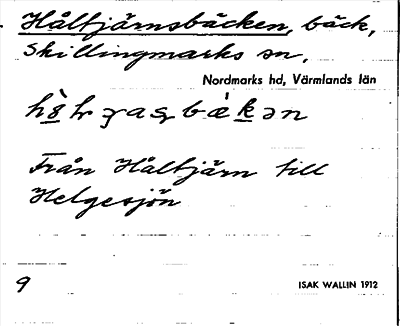 Håltjärnsbäcken, bäck,
Skillingmarks sn,
Nordmarks hd, Värmlands län
Från Håltjärn till
Helgesjön
9
ISAK WALLIN 1912